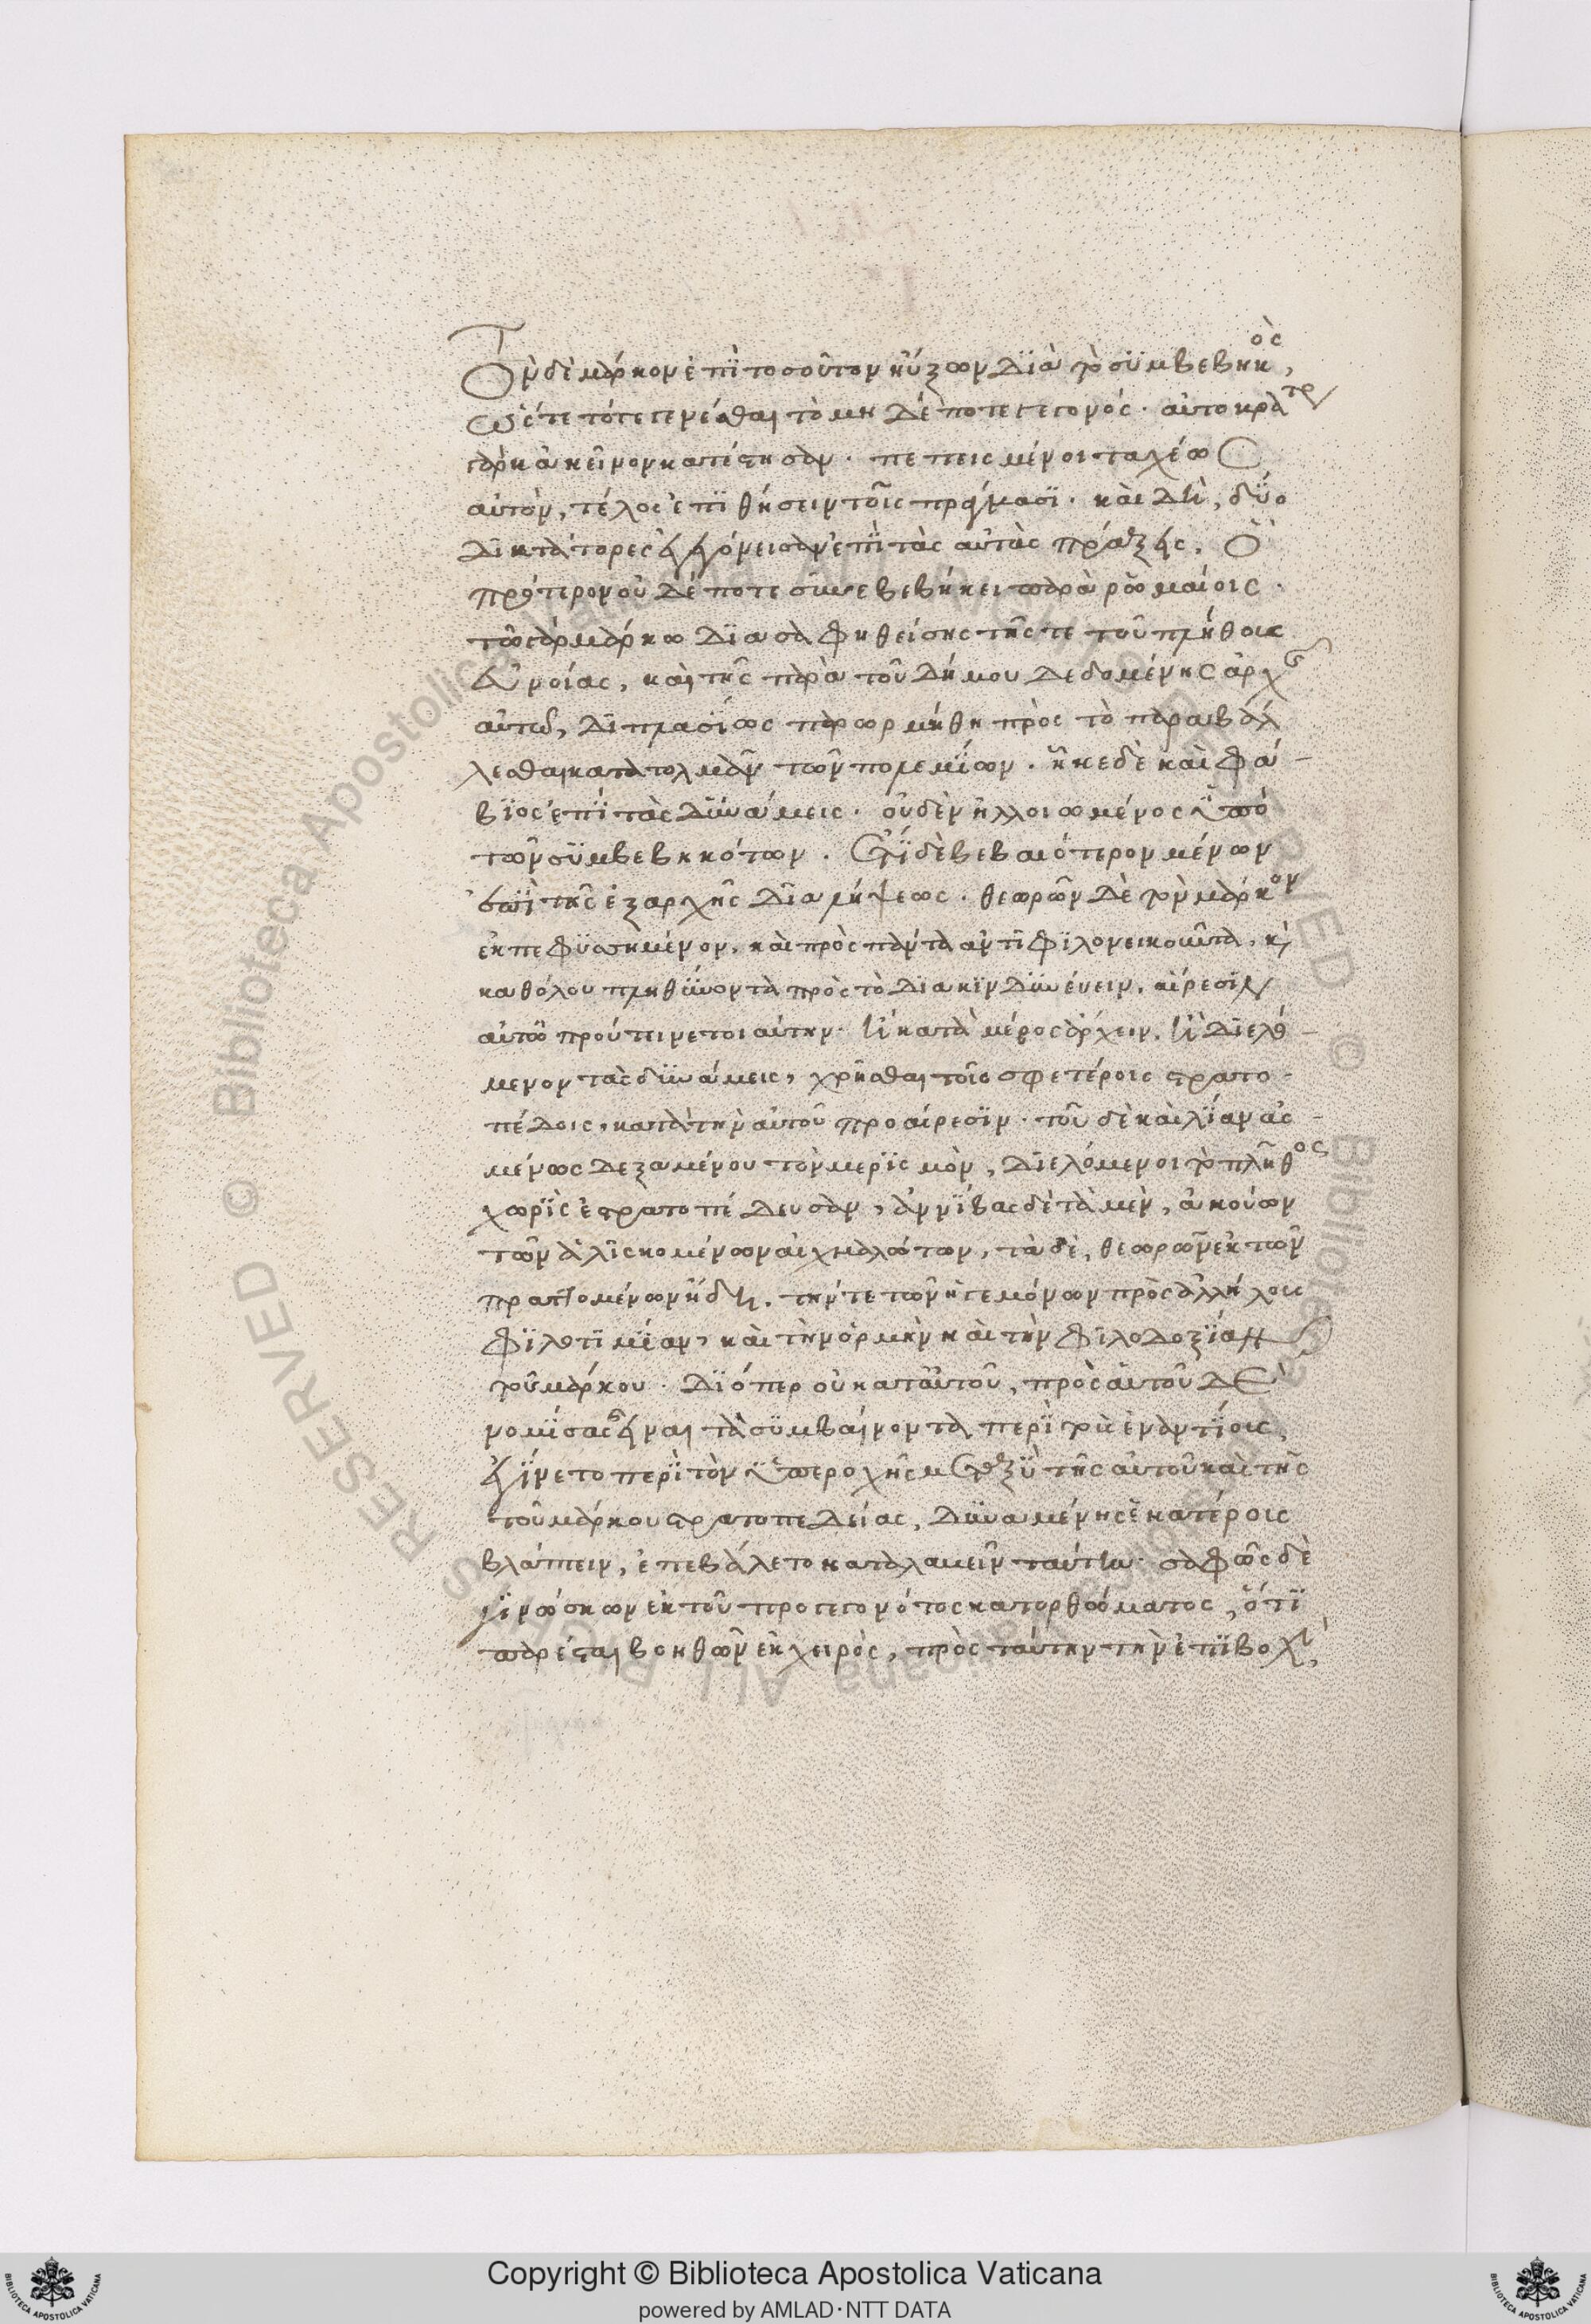 Τὸν δὲ μάρκον ἐπϊτοσοῦτον ηὔξων διὰ τὸ σϋμβεβηκὸς,
ὥστε τότε γενέσθαι τὸ μηδέποτε γεγονός. αὐτοκράτορ
γὰρ κἀκεῖνον κατέστησαν. πεπεισμένοι ταχέως
αὐτὸν, τέλος ἐπϊθήσειν τοῖς πράγμασϊ. καὶ δὴ, δύο
δικτάτορες ἐγεγόνεισαν ἐπὶ τὰς αὐτὰς πράξεις. ὃ
πρότερον οὐδέποτε συνεβεβήκει παρὰ ῥωμαίοις.
τῶ γὰρ μάρκω διασαφηθείσης τῆς τε τοῦ πλήθους
εὐνοίας, καὶ τῆς παρὰ τοῦ δήμου δεδομένης ἀρχῆς
αὐτῶ, διπλασίως παρωρμήθη πρὸς τὸ παραβάλ
λεσθαι κατατολμᾶν τῶν πολεμίων. ἧκε δὲ καὶ φά-
βϊος ἐπϊ τὰς δυνάμεις. οὐδὲν ἠλλοιωμένος ὑπὸ
τῶν σϋμβεβηκότων. ἔτι δὲ βεβαιότερον μένων
ἐπὶ τῆς ἐξαρχῆς διαλήψεως. θεωρῶν δὲ τὸν μάρκον
ἐκπεφϋσημένον, καὶ πρὸς πάντα ἀντϊφϊλονεικοῦντα, κὶ
καθόλου πληθύνοντα πρὸς τὸ διακϊνδυνεύειν, αἵρεσϊν
αὐτῶ προὔτεινε τοιαύτην. ἢ κατὰ μέρος ἄρχειν, ἢ διελό-
μενον τὰς δυνάμεις, χρῆσθαι τοῖς σφετέροις στρατο-
πέδοις, κατὰ τὴν αὐτοῦ προαίρεσϊν. τοῦ δὲ καὶ λίαν ἀσ-
μένως δεξαμένου τὸν μερϊσμὸν, διελόμενοι τὸ πλῆθος
χωρὶς ἐστρατοπέδευσαν, ἀννίβας δὲ τὰ μὲν, ἀκούων
τῶν ἁλισκομένων αἰχμαλώτων, τὰ δὲ, θεωρῶν ἐκ τῶν
πραττομένων ἤδη. τήν τε τῶν ἡγεμόνων πρὸς ἀλλήλους
φϊλοτϊμίαν, καὶ τὴν ὁρμὴν καὶ τὴν φϊλοδοξίαν
τοῦ μάρκου. διόπερ οὐ κατ᾽ αὐτοῦ, πρὸς αὐτοῦ δὲ
νομίσας εἶναι τὰ σϋμβαίνοντα περὶ τοὺς ἐναντίους,
ἐγίνετο περὶ τὸν ὑπεροχῆς μεταξὺ τῆς αὐτοῦ καὶ τῆς
τοῦ μάρκου στρατοπεδείας, δυναμένης ἑκατέροις
βλάπτειν, ἐπεβάλετο καταλαμεῖν ταύτην. σαφῶς δὲ
γϊνώσκων ἐκ τοῦ προγεγονότος κατορθώματος, ὅτϊ
παρέσται βοηθῶν ἐκ χειρὸς, πρὸς ταύτην τὴν ἐπϊβολὴ,
Copyright © Biblioteca Apostolica Vaticana
powered by AMLAD·NTT DATA